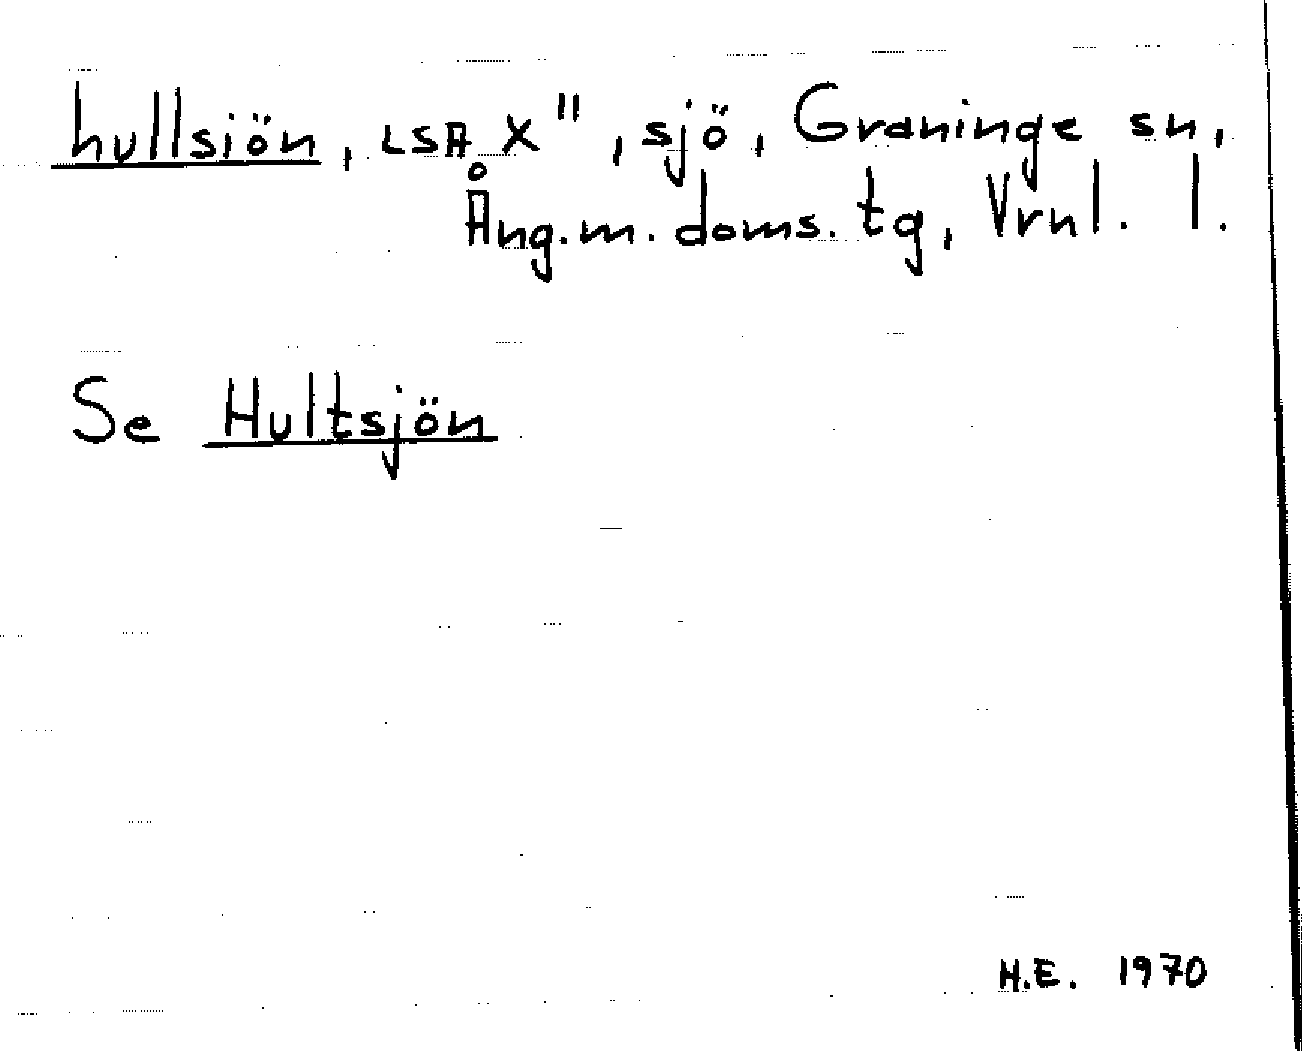 hullsiön, LSA X", sjö, Graninge sn,
Ång.m. doms. tg, Vrnl. l.
Se Hultsjön
H.E. 1970